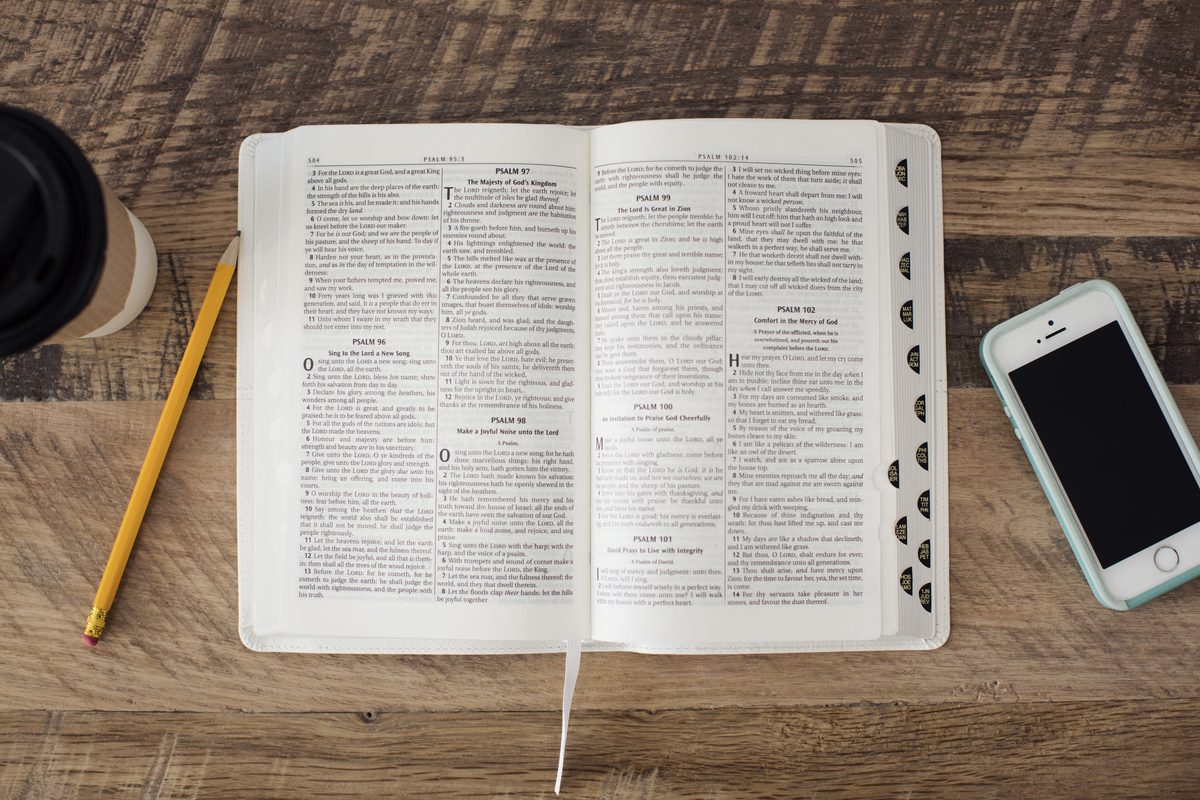 504 PSALM 95:3
3 For the LORD is a great God, and a great King
above all gods.
4 In his hand are the deep places of the earth:
the strength of the hills is his also.
5 The sea is his, and he made it: and his hands
formed the dry land.
6 O come, let us worship and bow down: let
us kneel before the LORD our maker.
7 For he is our God; and we are the people of
his pasture, and the sheep of his hand. To day if
ye will hear his voice,
8 Harden not your heart, as in the provoca-
tion, and as in the day of temptation in the wil-
derness:
9 When your fathers tempted me, proved me,
and saw my work.
10 Forty years long was I grieved with this
generation, and said, It is a people that do err in
their heart, and they have not known my ways:
11 Unto whom I sware in my wrath that they
should not enter into my rest.
PSALM 96
Sing to the Lord a New Song
O sing unto the LORD a new song: sing unto
the LORD, all the earth.
2 Sing unto the LORD, bless his name; shew
forth his salvation from day to day.
3 Declare his glory among the heathen, his
wonders among all people.
4 For the LORD is great, and greatly to be
praised: he is to be feared above all gods.
5 For all the gods of the nations are idols: but
the LORD made the heavens.
6 Honour and majesty are before him:
strength and beauty are in his sanctuary.
7 Give unto the LORD, O ye kindreds of the
people, give unto the LORD glory and strength.
8 Give unto the LORD the glory due unto his
name: bring an offering, and come into his
courts.
9 O worship the LORD in the beauty of holi-
ness: fear before him, all the earth.
10 Say among the heathen that the LORD
reigneth: the world also shall be established
that it shall not be moved: he shall judge the
people righteously.
11 Let the heavens rejoice, and let the earth
be glad; let the sea roar, and the fulness thereof.
12 Let the field be joyful, and all that is there-
in: then shall all the trees of the wood rejoice
13 Before the LORD: for he cometh, for he
cometh to judge the earth: he shall judge the
world with righteousness, and the people with
his truth.
PSALM 97
The Majesty of God's Kingdom
The LORD reigneth; let the earth rejoice; let
the multitude of isles be glad thereof.
2 Clouds and darkness are round about him:
righteousness and judgment are the habitation
of his throne.
3 A fire goeth before him, and burneth up his
enemies round about.
4 His lightnings enlightened the world: the
earth saw, and trembled.
5 The hills melted like wax at the presence of
the LORD, at the presence of the Lord of the
whole earth.
6 The heavens declare his righteousness, and
all the people see his glory.
7 Confounded be all they that serve graven
images, that boast themselves of idols: worship
him, all ye gods.
8 Zion heard, and was glad; and the daugh-
ters of Judah rejoiced because of thy judgments,
O LORD.
9 For thou, LORD, art high above all the earth:
thou art exalted far above all gods.
10 Ye that love the LORD, hate evil: he preser-
veth the souls of his saints; he delivereth them
out of the hand of the wicked.
11 Light is sown for the righteous, and glad-
ness for the upright in heart.
12 Rejoice in the LORD, ye righteous; and give
thanks at the remembrance of his holiness.
PSALM 98
Make a Joyful Noise unto the Lord
A Psalm.
O sing unto the LORD a new song; for he hath
done marvellous things: his right hand,
and his holy arm, hath gotten him the victory.
2 The LORD hath made known his salvation:
his righteousness hath he openly shewed in the
sight of the heathen.
3 He hath remembered his mercy and his
truth toward the house of Israel: all the ends of
the earth have seen the salvation of our God.
4 Make a joyful noise unto the LORD, all the
earth: make a loud noise, and rejoice, and sing
praise.
5 Sing unto the LORD with the harp; with the
harp, and the voice of a psalm.
6 With trumpets and sound of cornet make a
joyful noise before the LORD, the King.
7 Let the sea roar, and the fulness thereof; the
world, and they that dwell therein.
8 Let the floods clap their hands: let the hills
be joyful together
PSALM 102:14 505
9 Before the LORD; for he cometh to judge the
earth: with righteousness shall he judge the
world, and the people with equity.
PSALM 99
The Lord Is Great in Zion
The LORD reigneth; let the people tremble: he
sitteth between the cherubims; let the earth
be moved.
2 The LORD is great in Zion; and he is high
above all the people.
3 Let them praise thy great and terrible name;
for it is holy.
4 The king's strength also loveth judgment;
thou dost establish equity, thou executest judg-
ment and righteousness in Jacob.
5 Exalt ye the LORD our God, and worship at
his footstool; for he is holy.
6 Moses and Aaron among his priests, and
Samuel among them that call upon his name;
they called upon the LORD, and he answered
them.
7 He spake unto them in the cloudy pillar:
they kept his testimonies, and the ordinance
that he gave them.
8 Thou answeredst them, O LORD our God:
thou wast a God that forgavest them, though
thou tookest vengeance of their inventions.
9 Exalt the LORD our God, and worship at his
holy hill; for the LORD our God is holy.
PSALM 100
An Invitation to Praise God Cheerfully
A Psalm of praise.
Make a joyful noise unto the LORD, all ye
lands.
2 Serve the LORD with gladness: come before
his presence with singing.
3 Know ye that the LORD he is God: it is he
that hath made us, and not we ourselves; we are
his people, and the sheep of his pasture.
4 Enter into his gates with thanksgiving, and
into his courts with praise: be thankful unto
him, and bless his name.
5 For the LORD is good; his mercy is everlast-
ing; and his truth endureth to all generations.
PSALM 101
David Prays to Live with Integrity
A Psalm of David.
I will sing of mercy and judgment: unto thee,
O LORD, will I sing.
2 I will behave myself wisely in a perfect way.
O when wilt thou come unto me? I will walk
within my house with a perfect heart.
3 I will set no wicked thing before mine eyes:
I hate the work of them that turn aside; it shall
not cleave to me.
4 A froward heart shall depart from me: I will
not know a wicked person.
5 Whoso privily slandereth his neighbour,
him will I cut off: him that hath an high look and
a proud heart will not I suffer.
6 Mine eyes shall be upon the faithful of the
land, that they may dwell with me: he that
walketh in a perfect way, he shall serve me.
7 He that worketh deceit shall not dwell with-
in my house: he that telleth lies shall not tarry in
my sight.
8 I will early destroy all the wicked of the land;
that I may cut off all wicked doers from the city
of the LORD.
PSALM 102
Comfort in the Mercy of God
A Prayer of the afflicted, when he is
overwhelmed, and poureth out his
complaint before the LORD.
Hear my prayer, O LORD, and let my cry come
unto thee.
2 Hide not thy face from me in the day when I
am in trouble; incline thine ear unto me: in the
day when I call answer me speedily.
3 For my days are consumed like smoke, and
my bones are burned as an hearth.
4 My heart is smitten, and withered like grass;
so that I forget to eat my bread.
5 By reason of the voice of my groaning my
bones cleave to my skin.
6 I am like a pelican of the wilderness: I am
like an owl of the desert.
7 I watch, and am as a sparrow alone upon
the house top.
8 Mine enemies reproach me all the day; and
they that are mad against me are sworn against
me.
9 For I have eaten ashes like bread, and min-
gled my drink with weeping,
10 Because of thine indignation and thy
wrath: for thou hast lifted me up, and cast me
down.
11 My days are like a shadow that declineth;
and I am withered like grass.
12 But thou, O LORD, shalt endure for ever;
and thy remembrance unto all generations.
13 Thou shalt arise, and have mercy upon
Zion: for the time to favour her, yea, the set time,
is come.
14 For thy servants take pleasure in her
stones, and favour the dust thereof.
OBA
JON
MIC
NAH
HAB
ZEP
HAG
ZEC
MAL
MAT
MAR
LUK
JHN
ACT
ROM
COR
GAL
EPH
PHI
COL
THS
SOL
ISA
JER
TIM
TIT
PHN
LAM
EZE
DAN
HEB
JAS
PET
HOS
JOE
AMO
1JN
JUD
REV